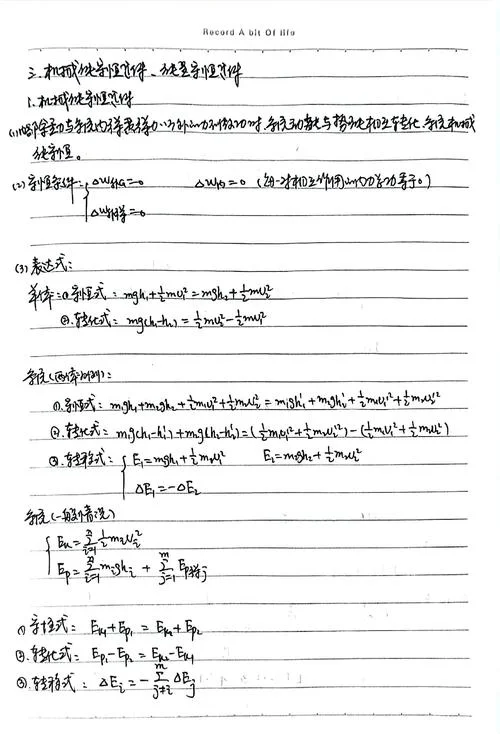 Record A bit Of life
三.机械能守恒定律、能量守恒定律
1.机械能守恒定律
(1)内部除重力与系统内弹簧弹力以外的力不做功时,系统动能与势能相互转化,系统机械
能守恒。
(2)守恒条件: ΔW外G=0 ΔW内=0 (每一对相互作用的内力总功等于0)
ΔW外弹=0
(3)表达式:
单体:①.守恒式: mgh₁+½mv₁²=mgh₂+½mv₂²
②.转化式: mg(h₁-h₂)=½mv₂²-½mv₁²
系统(两体为例):
①.守恒式: m₁gh₁+m₂gh₂+½m₁v₁²+½m₂v₂²=m₁gh₁'+m₂gh₂'+½m₁v₁'²+½m₂v₂'²
②.转化式: m₁g(h₁-h₁')+m₂g(h₂-h₂')=(½m₁v₁'²+½m₂v₂'²)-(½m₁v₁²+½m₂v₂²)
③.转移式: E₁=m₁gh₁+½m₁v₁² E₂=m₂gh₂+½m₂v₂²
ΔE₁=-ΔE₂
系统(一般情况)
Eₖ=Σⁿᵢ₌₁ ½mᵢvᵢ²
Eₚ=Σⁿᵢ₌₁ mᵢghᵢ + Σᵐⱼ₌₁ Eₚ弹ⱼ
①守恒式: Eₖ₁+Eₚ₁=Eₖ₂+Eₚ₂
②.转化式: Eₚ₁-Eₚ₂=Eₖ₂-Eₖ₁
③.转移式: ΔEᵢ=-Σᵐⱼ≠ᵢ ΔEⱼ